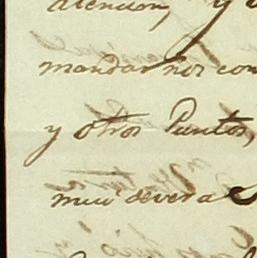 atencion, y
mandarnos con
y otros Puntos,
mui deveras